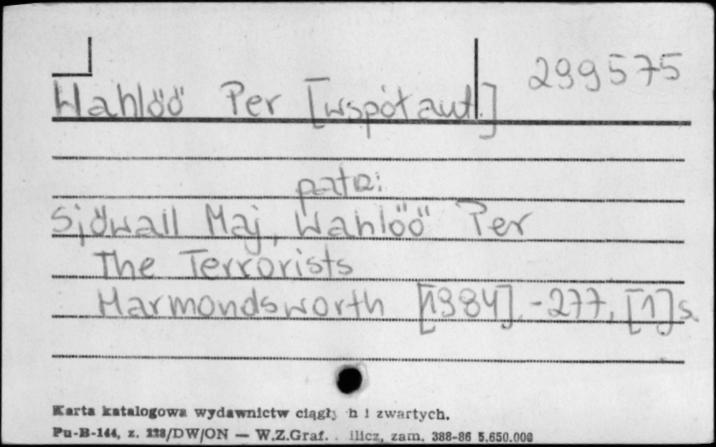 299575
Wahlöö Per [współaut.]
patz:
Sjöwall Maj, Wahlöö Per
The Terrorists
Harmondsworth [1984]. - 277, [1] s.
Karta katalogowa wydawnictw ciągły h i zwartych.
Pu-B-144, z. 228/DW/ON — W.Z.Graf. zam. 388-86 5.650.000